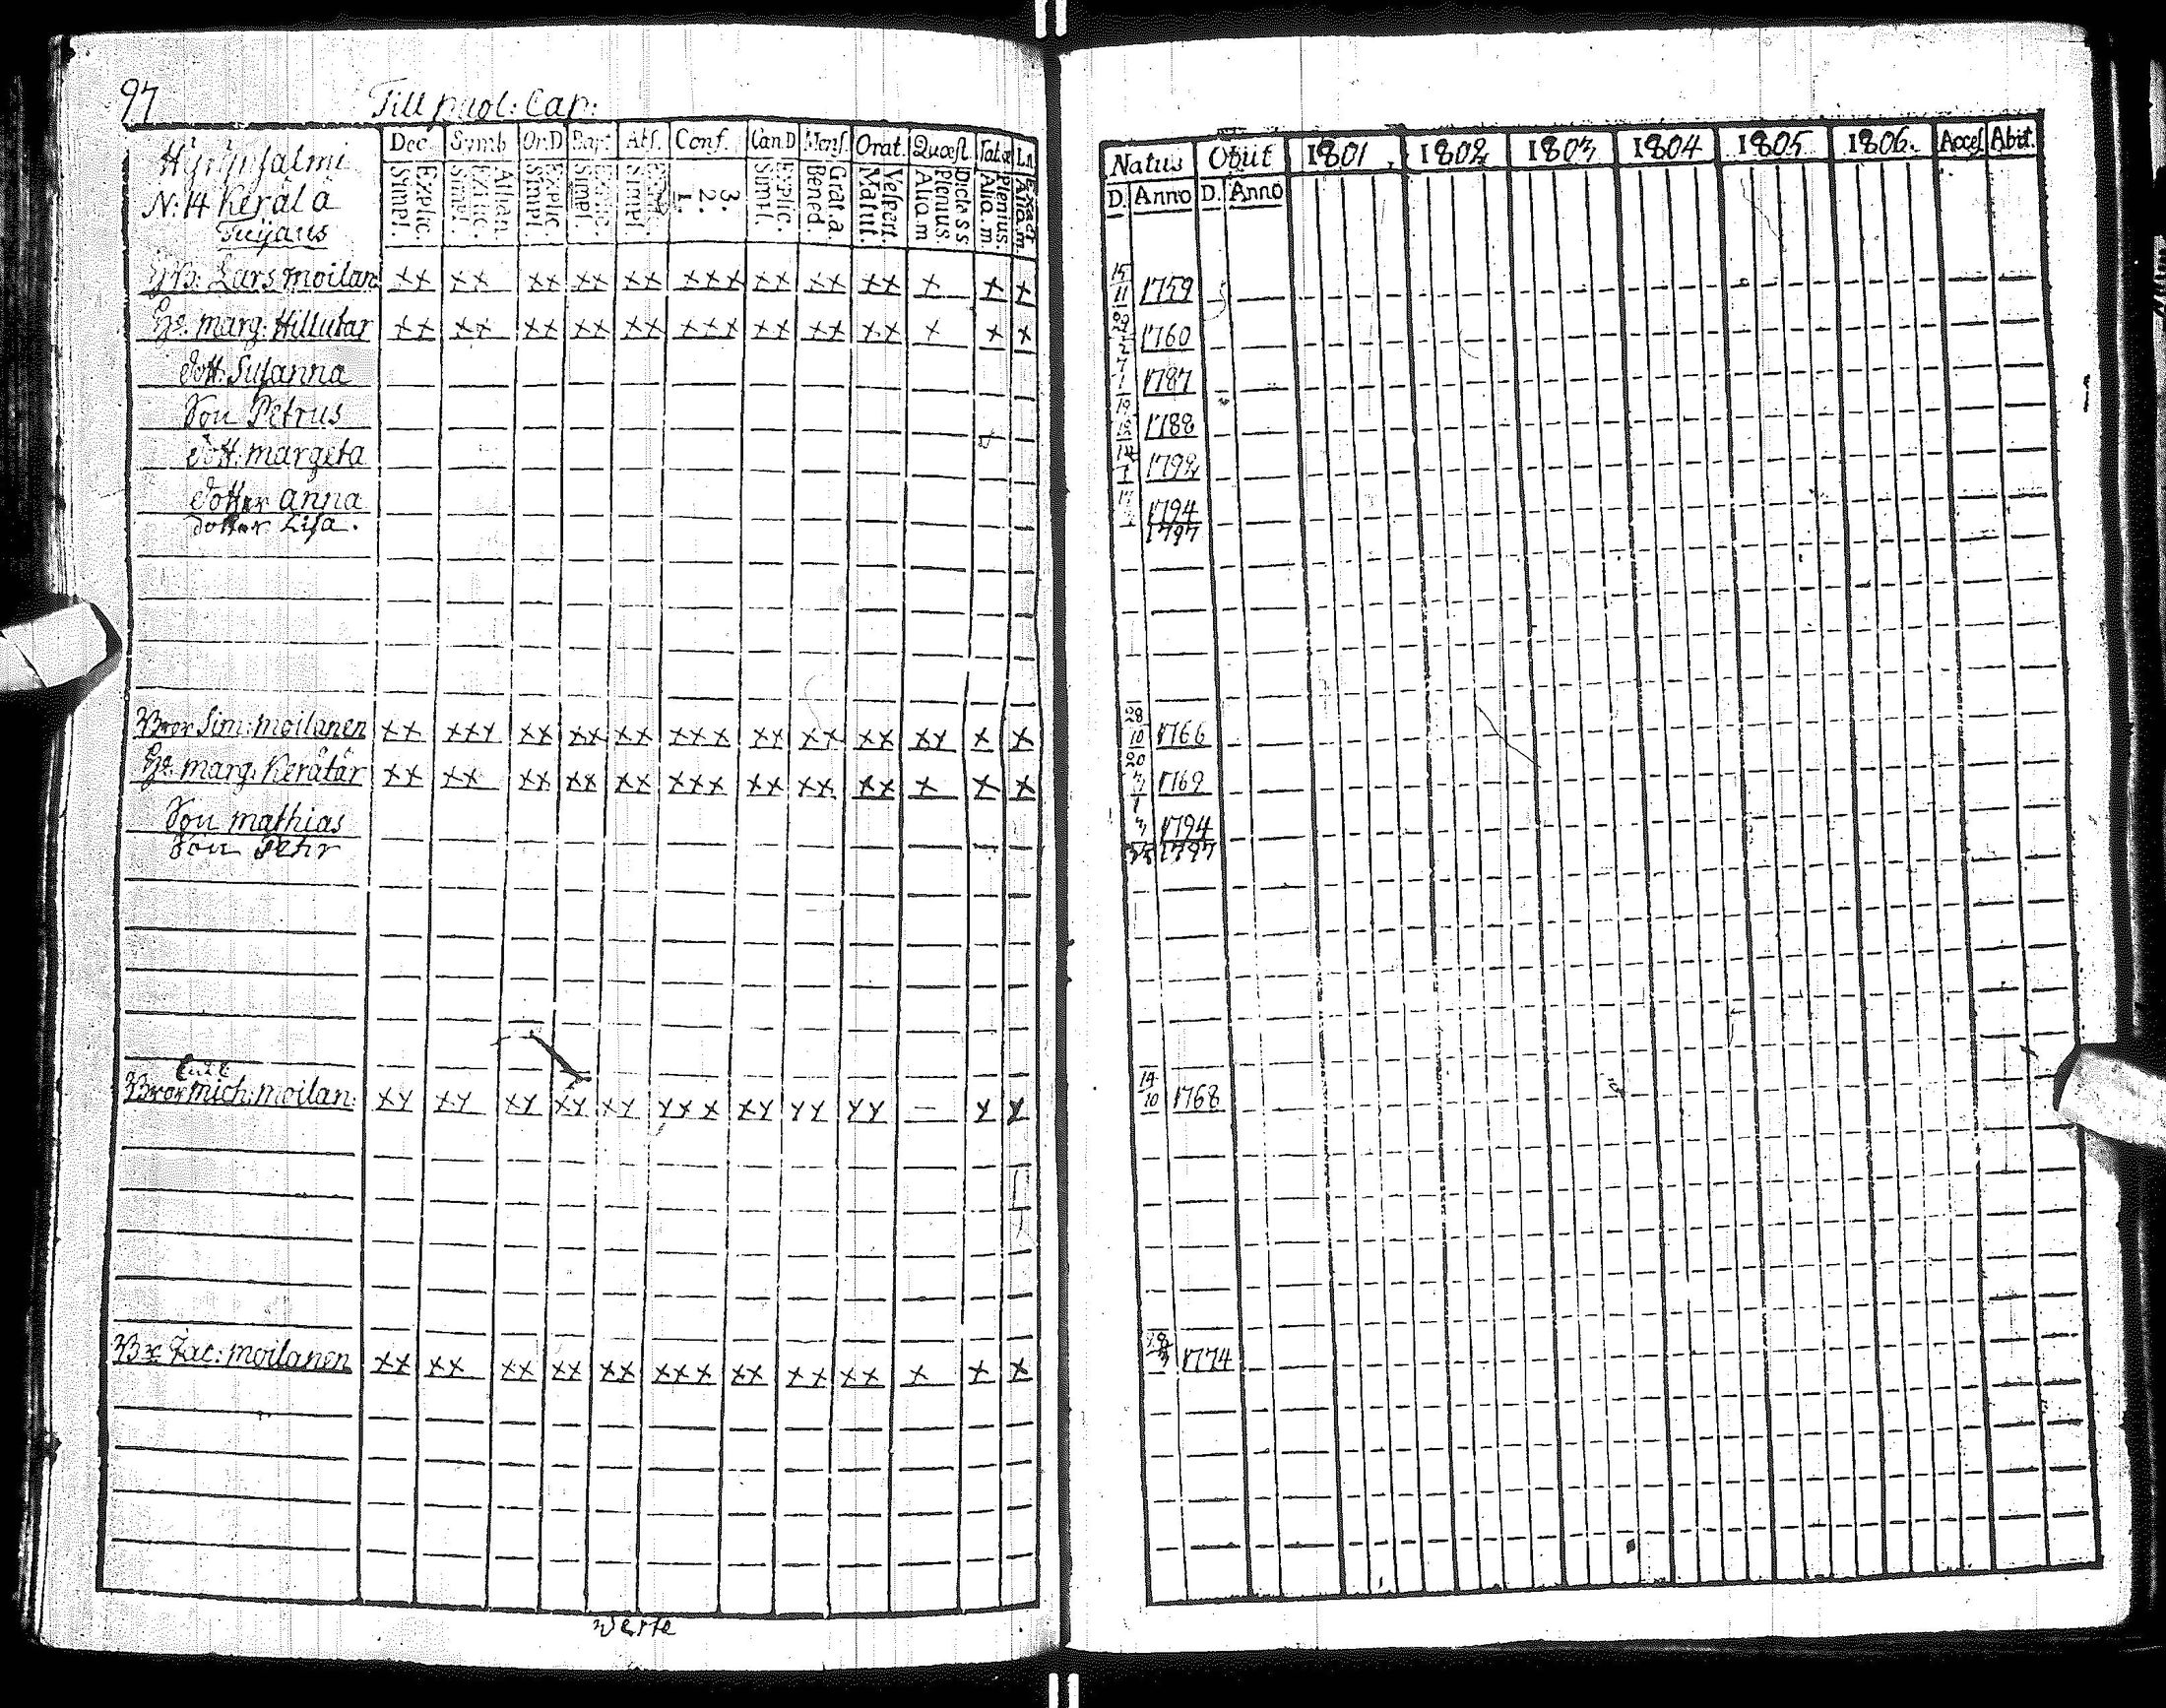 97 Till puol: Cap:
Dec. Symb Or.D Bapt Abs. Conf. Can.D Mens. Orat. Quæst Tab.œ Ln.
Explic. Simpl. Athan. Explic. Simpl. Explic. Simpl. Explic. Simpl. Simpl. 3. 2. 1. Explic. Simpl. Grat. a. Bened. Vespert. Matut. Dicta S S Plenius. Aliq. m Plenius. Aliq. m. Exacte Aliq. m.
Natus Obiit 1801 1802 1803 1804 1805 1806. Acces Abit.
D. Anno D. Anno
N: 14 Kerälä
Lars Moilan: XX XX XX XX XX XXX XX XX XX X X X 15/11 1759
Marg: Hillutar XX XX XX XX XX XXX XX XX XX X X X 1760
Dott. Susanna 1787
Son Petrus 1788
Dott. Margeta 1792
Dotter Anna 1794
Dotter Lisa. 1797
Bror Sim: Moilanen XX XXX XX XX XX XXX XX XX XX XX X X 28/10 1766
Marg. Kerätär XX XX XX XX XX XXX XX XX XX X X X 1769
Son Mathias 1794
Son Pehr 1797
Bror Mich: Moilan: XX XX XX XX XX XXX XX XX XX — X X 14/10 1768
Br: Jac: Moilanen XX XX XX XX XX XXX XX XX XX X X X 1774
Verte